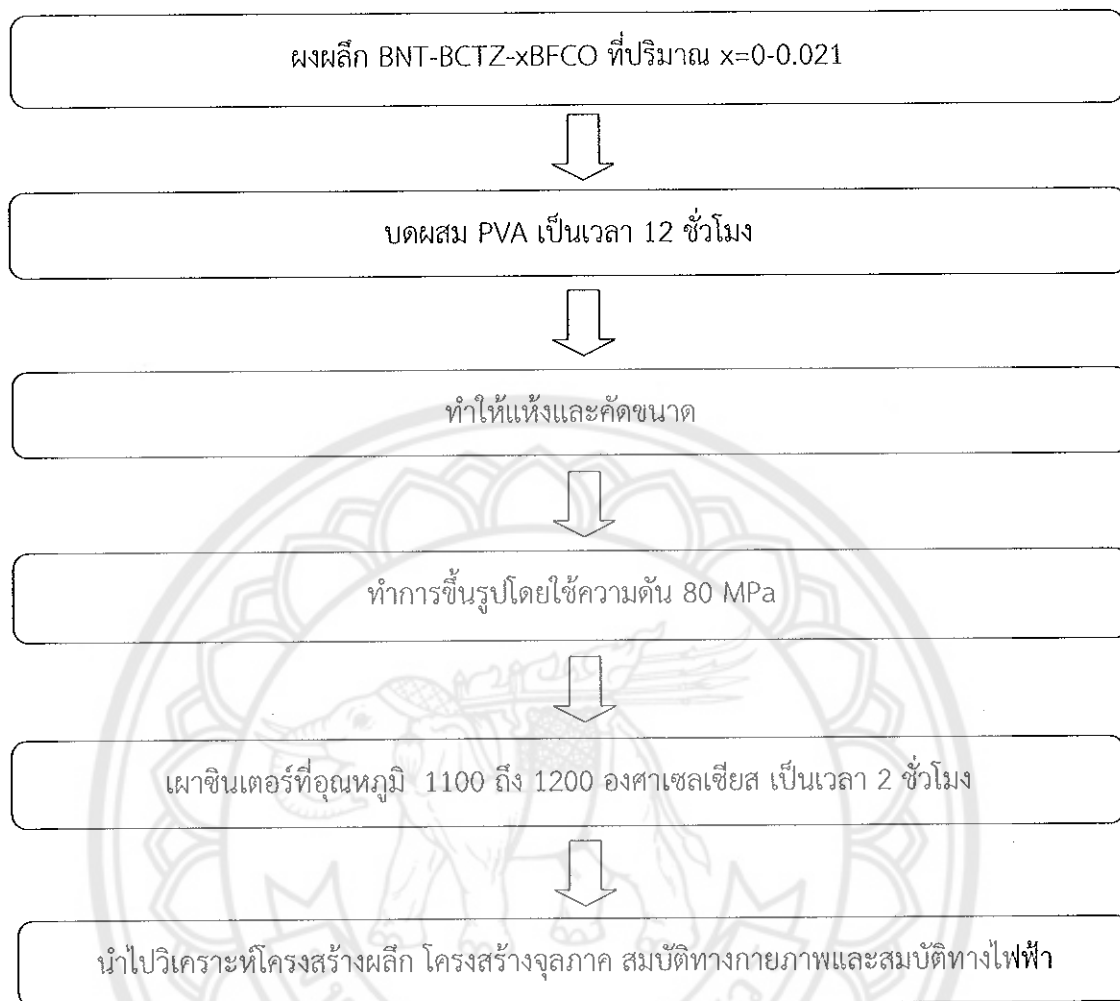 ผงผลึก BNT-BCTZ-xBFCO ที่ปริมาณ x=0-0.021
บดผสม PVA เป็นเวลา 12 ชั่วโมง
ทำให้แห้งและคัดขนาด
ทำการขึ้นรูปโดยใช้ความดัน 80 MPa
เผาซินเตอร์ที่อุณหภูมิ 1100 ถึง 1200 องศาเซลเซียส เป็นเวลา 2 ชั่วโมง
นำไปวิเคราะห์โครงสร้างผลึก โครงสร้างจุลภาค สมบัติทางกายภาพและสมบัติทางไฟฟ้า